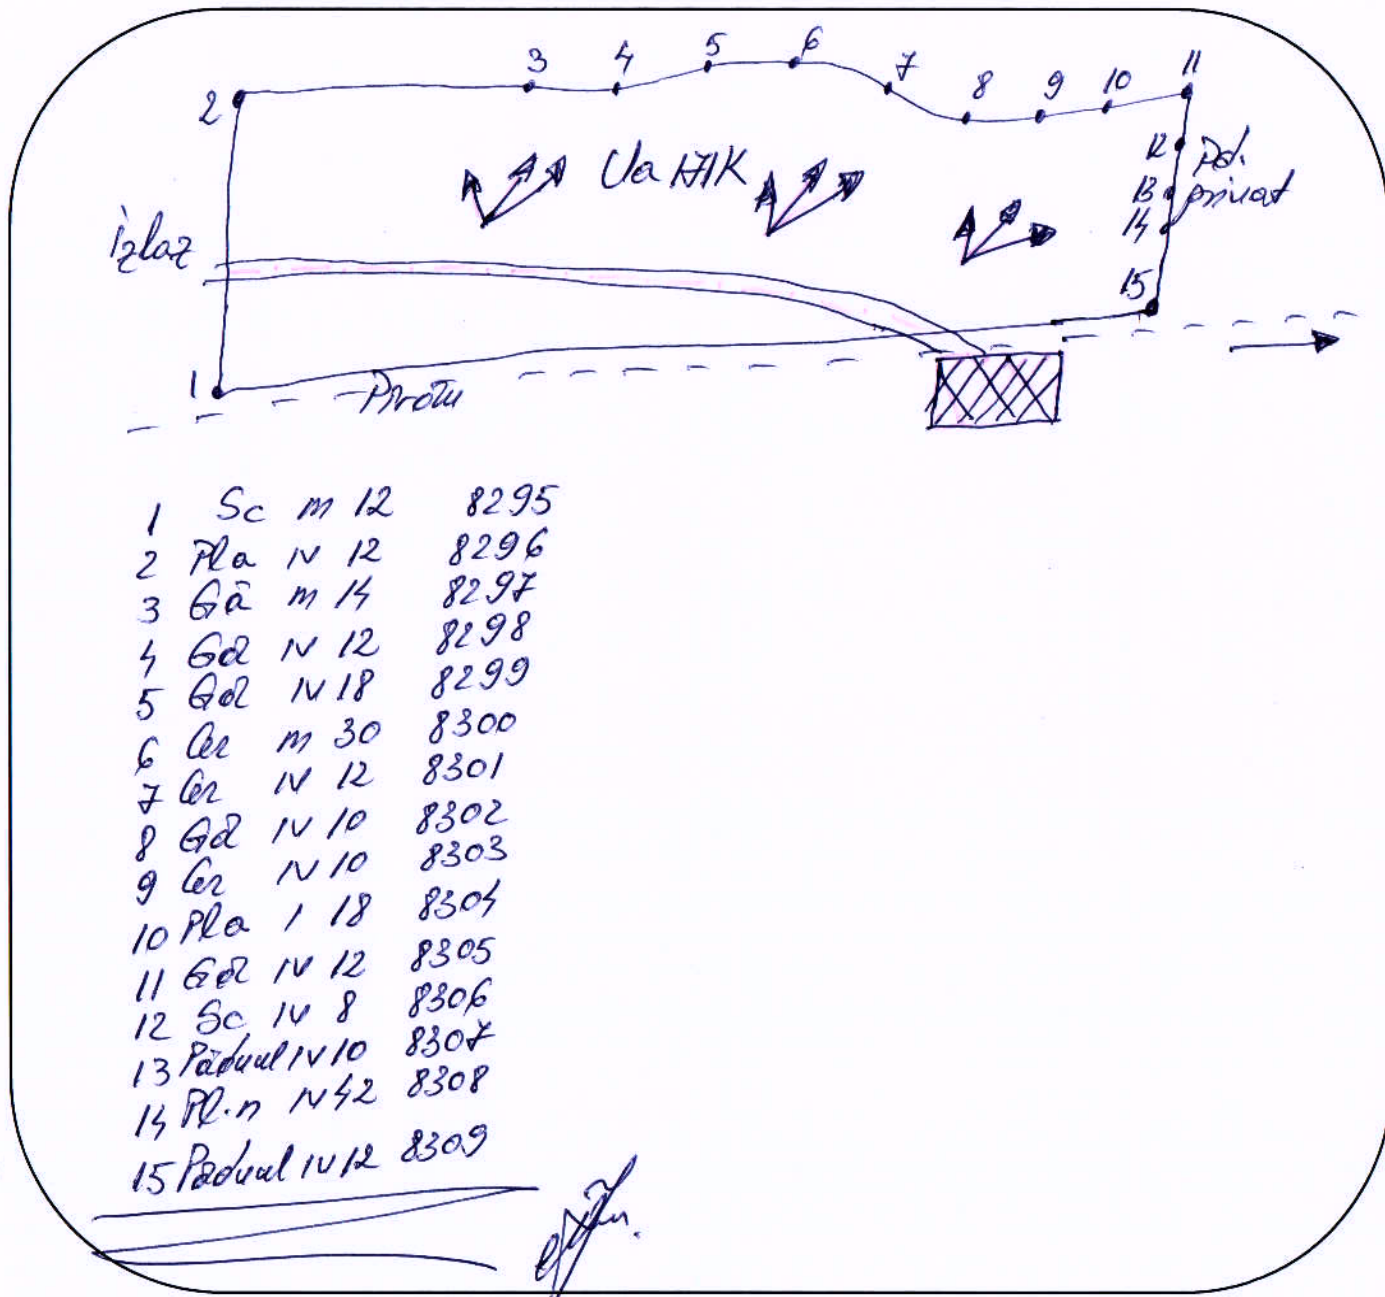 3 4 5 6 7 8 9 10 11
2
12 Pd.
Ua 171K
13 privat
14
izlaz
15
1
Pârâu
1 Sc m 12 8295
2 Pla IV 12 8296
3 Gâ m 14 8297
4 Gâ IV 12 8298
5 Gâ IV 18 8299
6 Cer m 30 8300
7 Cer IV 12 8301
8 Gâ IV 10 8302
9 Cer IV 10 8303
10 Pla I 18 8304
11 Gâ IV 12 8305
12 Sc IV 8 8306
13 Păducel IV 10 8307
14 Pl.n IV 42 8308
15 Păducel IV 12 8309